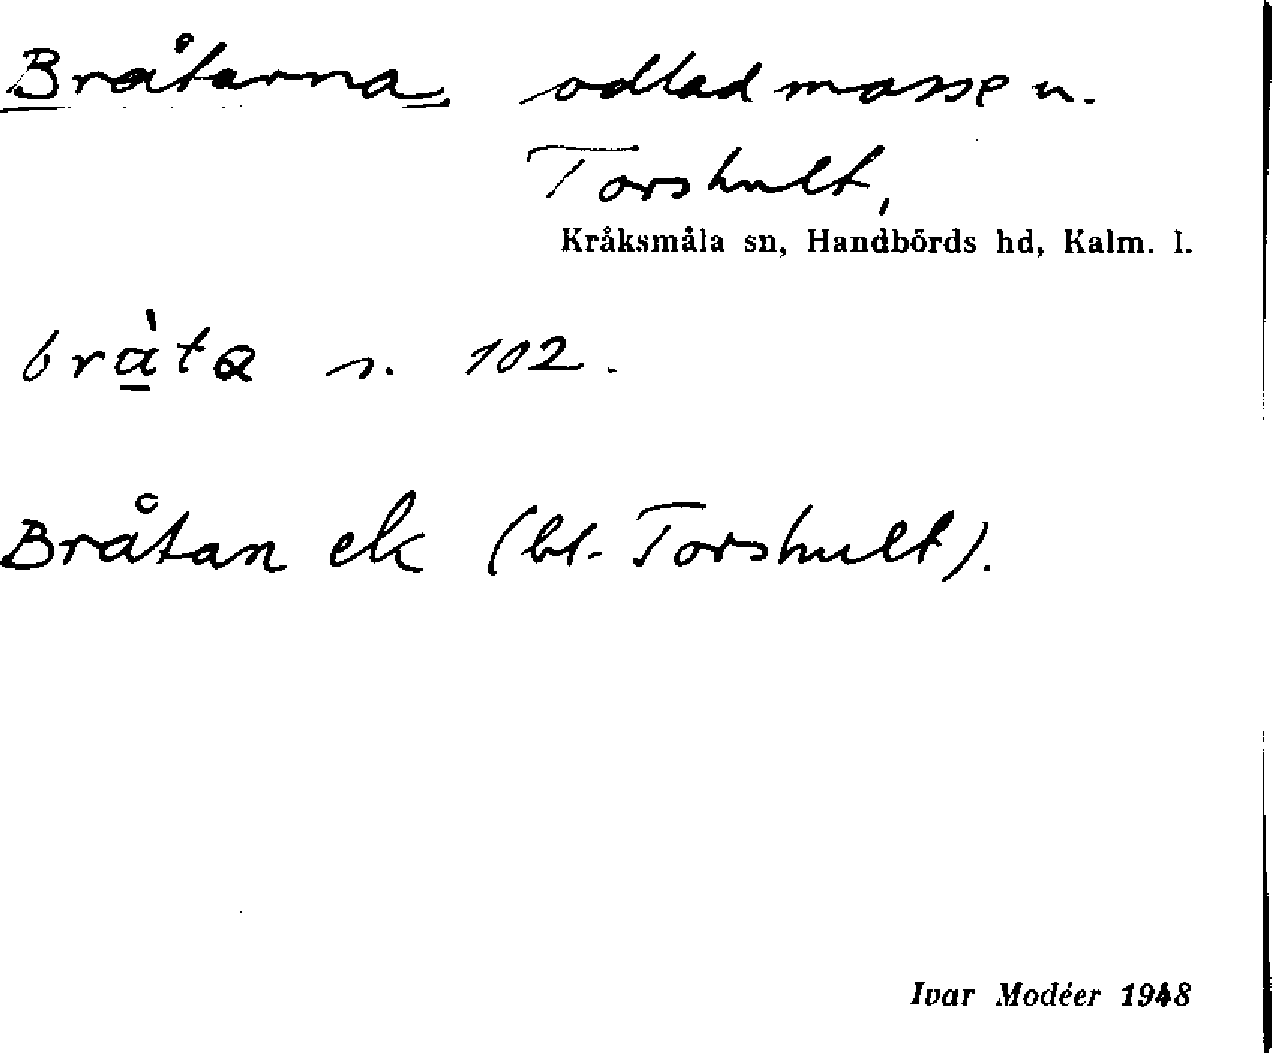 Bråtarna, odlad mosse u.
Torshult,
Kråksmåla sn, Handbörds hd, Kalm. l.
bràta s. 102.
Bråtan ek (bl. Torshult).
Ivar Modéer 1948